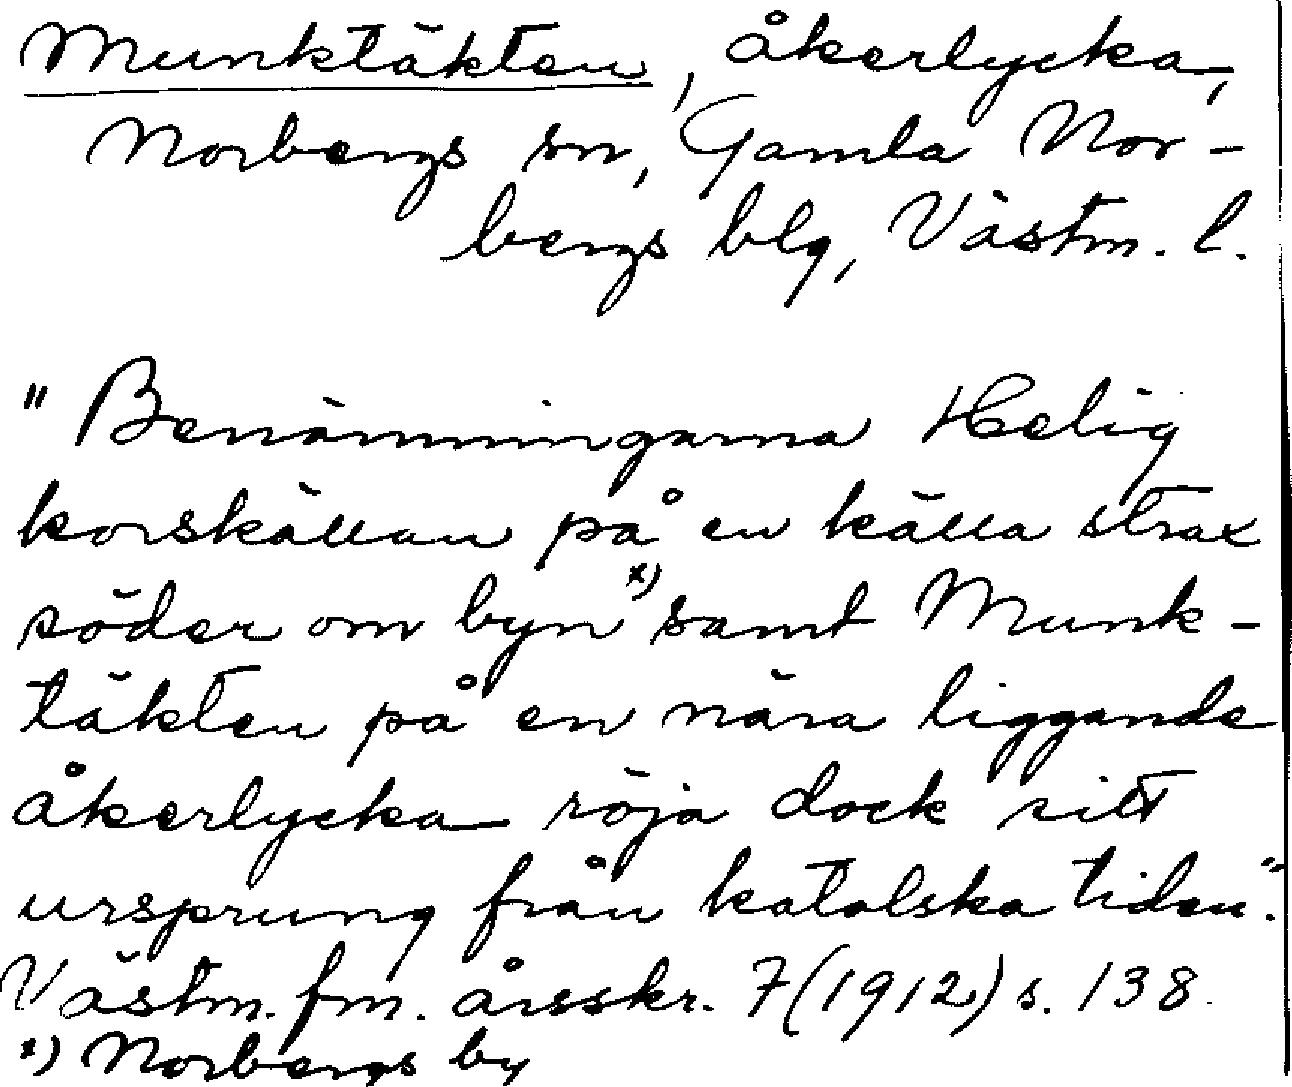 Munktäkten, åkerlycka,
Norbergs sn, Gamla Nor-
bergs blg, Västm. l.
"Benämningarna Helig
korskällan på en källa strax
söder om byn x) samt Munk-
täkten på en nära liggande
åkerlycka röja dock sitt
ursprung från katolska tiden."
Västm. fm. årsskr. 7 (1912) s. 138.
x) Norbergs by